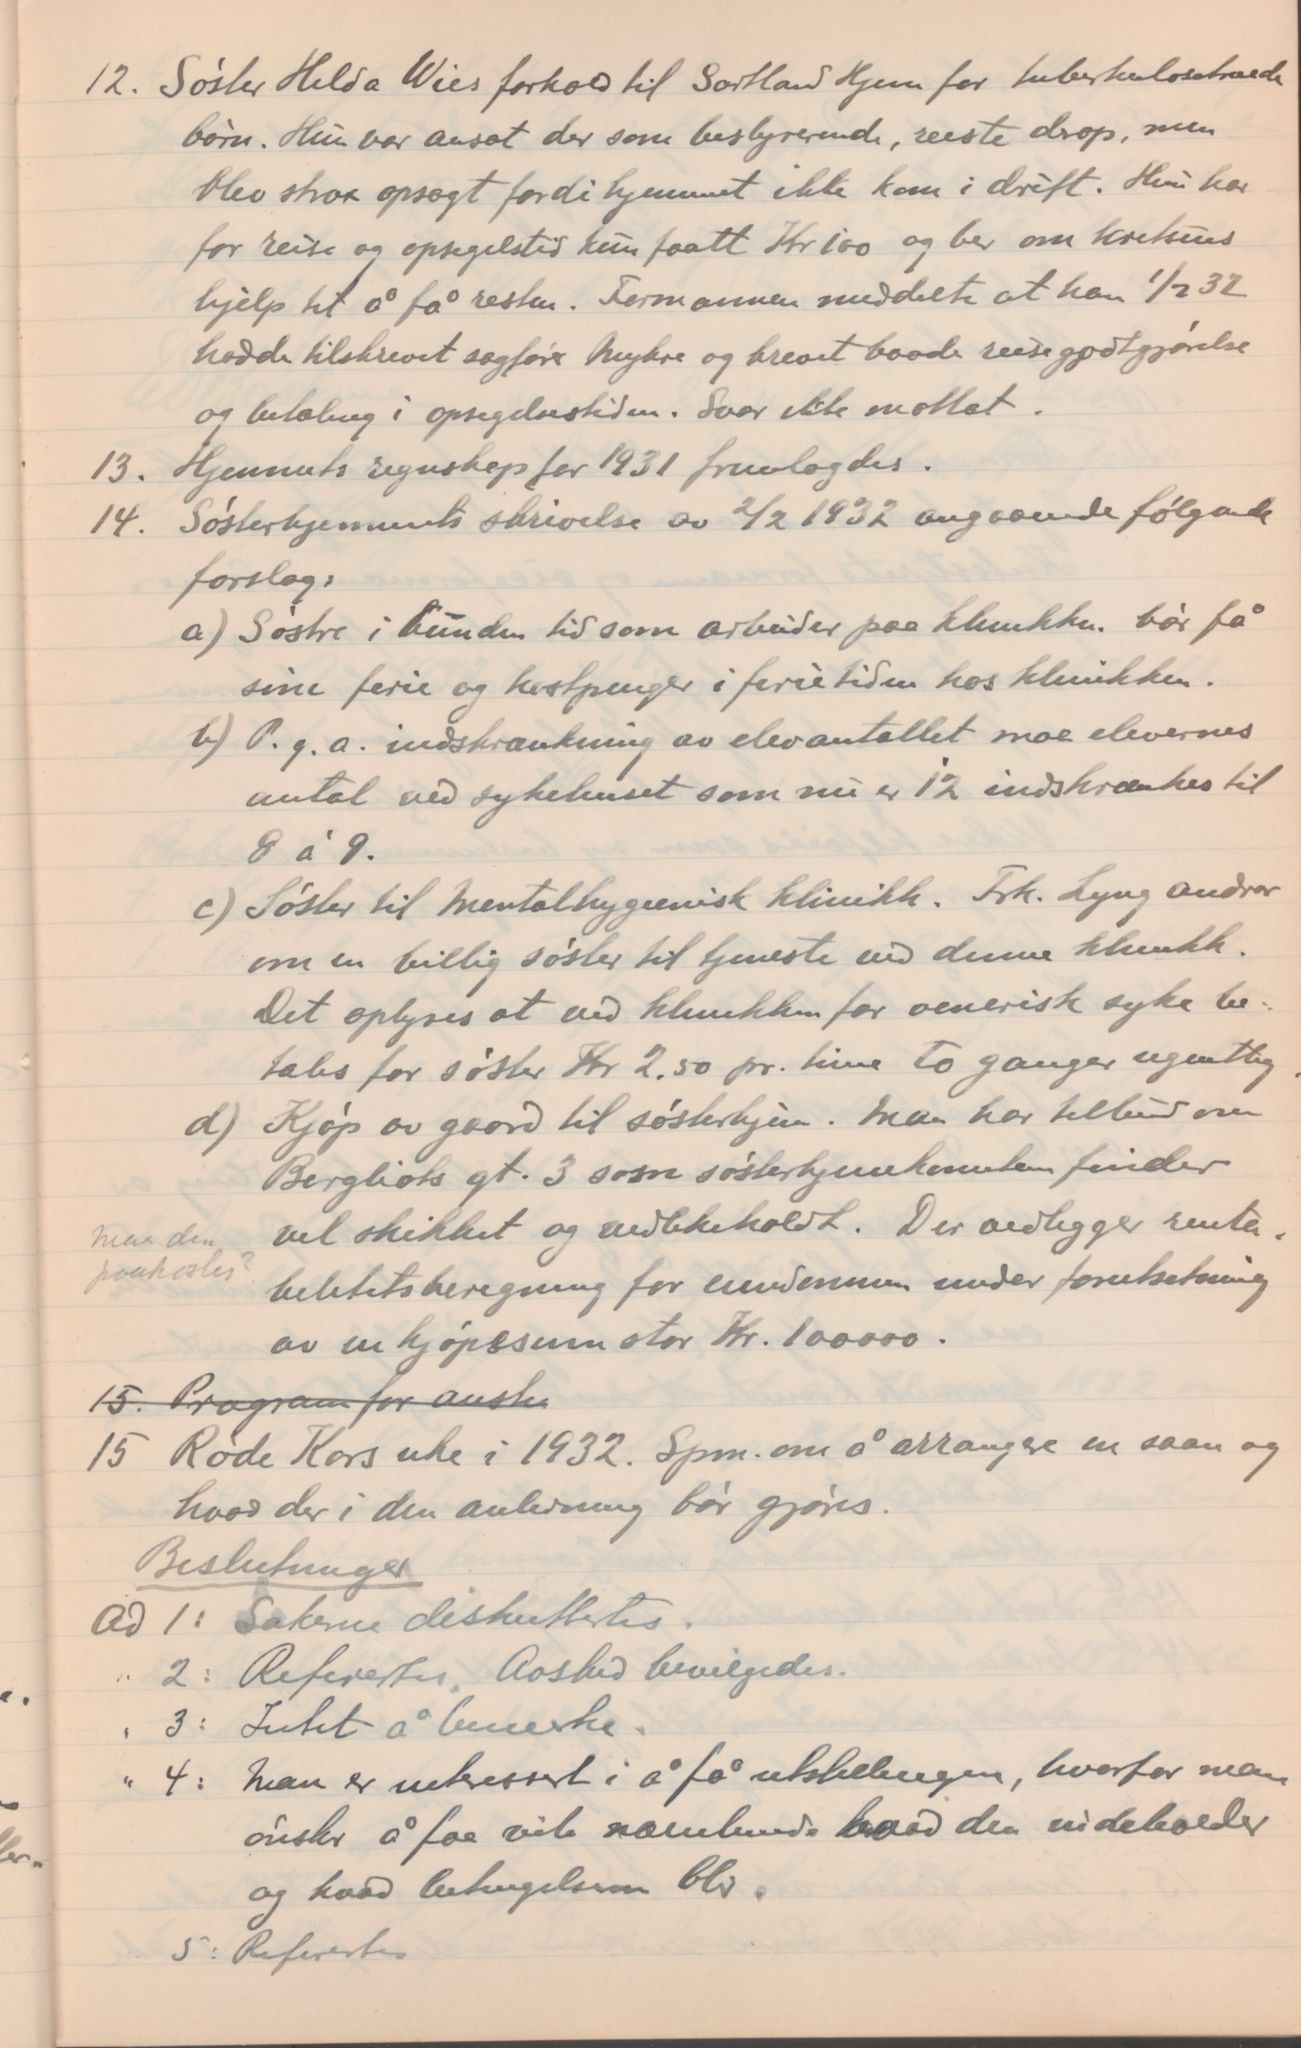 12. Søster Helda Wies forhold til Sortland Hjem for tuberkulosetruede
børn. Hun var ansat der som bestyrerinde, reiste derop, men
blev strax opsagt fordi hjemmet ikke kom i drift. Hun har
for reise og opsigelstid kun faatt Kr 100 og ber om kretsens
hjelp til å få resten. Formannen meddelte at han 1/2 32
hadde tilskrevet sagfører Myhre og krevet baade reisegodtgjørelse
og betaling i opsigelsestiden. Svar ikke mottat.
13. Hjemmets regnskap for 1931 fremlagdes.
14. Søsterhjemmets skrivelse av 2/2 1932 angaaende følgende
forslag:
a) Søstre i bunden tid som arbeider paa klinikken bør få
sine ferie og kostpenger i ferietiden hos klinikken.
b) P. g. a. indskrænkning av elevantallet maa elevernes
antal ved sykehuset som nu er 12 indskrænkes til
8 à 9.
c) Søster til Mentalhygienisk klinikk. Frk. Lyng andrar
om en billig søster til tjeneste ved denne klinikk.
Det oplyses at ved klinikken for venerisk syke be-
tales for søster Kr 2.50 pr. time to ganger ugentlig.
d) Kjøp av gaard til søsterhjem. Man har tilbud om
Bergliots gt. 3 som søsterhjemkomiteen finder
vel skikket og vedlikeholdt. Der vedlegger renta-
man den
paakostes?
belitetsberegning for eiendommen under forutsetning
av en kjøpesum stor Kr. 100000.
15. Program for anske
15 Røde Kors uke i 1932. Spm. om å arrangere en saan og
hvad der i den anledning bør gjøres.
Beslutninger
Ad 1: Sakerne diskuttertes.
" 2: Refererdes. Avsked bevilgedes.
" 3: Intet å bemerke.
" 4: Man er interessert i å få utstillingen, hvorfor man
ønsker å faa vite hvad den indeholder
og hvad betingelsene blir.
5: Refererdes